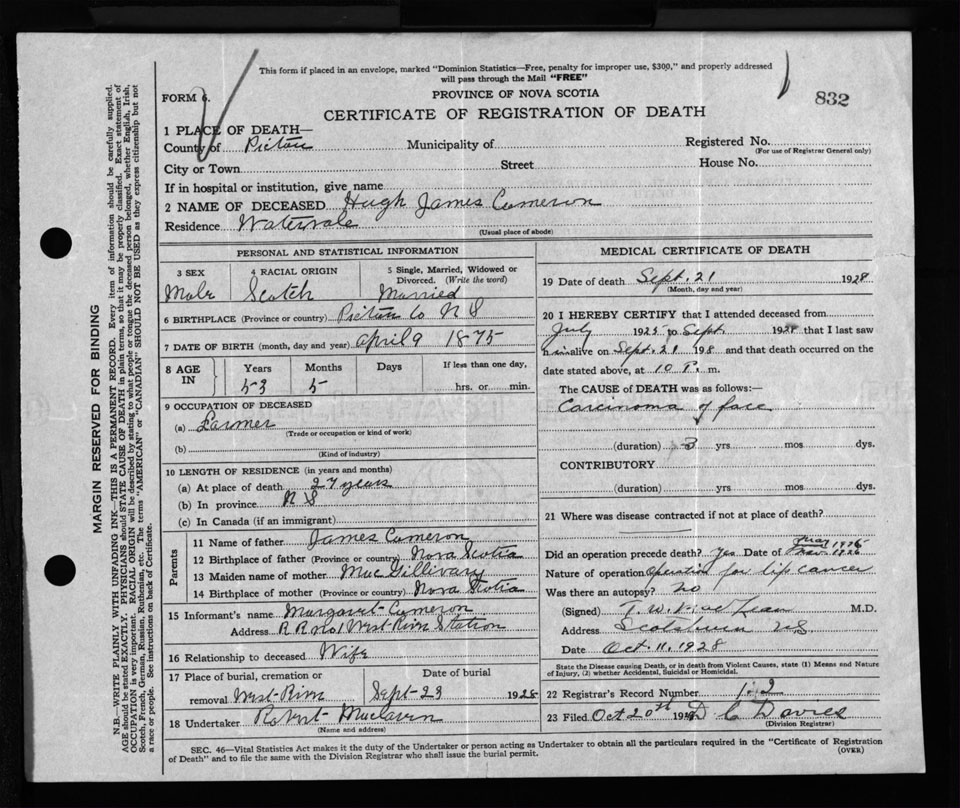 This form if placed in an envelope, marked "Dominion Statistics—Free, penalty for improper use, $300," and properly addressed
will pass through the Mail "FREE"
FORM 6.
PROVINCE OF NOVA SCOTIA
832
CERTIFICATE OF REGISTRATION OF DEATH
1 PLACE OF DEATH—
County of Pictou Municipality of Registered No.
(For use of Registrar General only)
City or Town Street House No.
If in hospital or institution, give name
2 NAME OF DECEASED Hugh James Cameron
Residence Watervale
(Usual place of abode)
PERSONAL AND STATISTICAL INFORMATION
3 SEX 4 RACIAL ORIGIN 5 Single, Married, Widowed or
Divorced. (Write the word)
Male Scotch Married
6 BIRTHPLACE (Province or country) Pictou Co N S
7 DATE OF BIRTH (month, day and year) April 9 1875
8 AGE IN Years Months Days If less than one day,
53 5 hrs. or min.
9 OCCUPATION OF DECEASED
(a) Farmer
(Trade or occupation or kind of work)
(b)
(Kind of industry)
10 LENGTH OF RESIDENCE (in years and months)
(a) At place of death 27 years
(b) In province N S
(c) In Canada (if an immigrant)
Parents
11 Name of father James Cameron
12 Birthplace of father (Province or country) Nova Scotia
13 Maiden name of mother MacGillivary
14 Birthplace of mother (Province or country) Nova Scotia
15 Informant's name Margaret Cameron
Address R R No 1 West River Station
16 Relationship to deceased Wife
17 Place of burial, cremation or Date of burial
removal West River Sept-23 1928
18 Undertaker Robert Maclaren
(Name and address)
MEDICAL CERTIFICATE OF DEATH
19 Date of death Sept. 21 1928
(Month, day and year)
20 I HEREBY CERTIFY that I attended deceased from
July 1925 to Sept 1928 that I last saw
him alive on Sept. 21 1928 and that death occurred on the
date stated above, at 10 P. m.
The CAUSE of DEATH was as follows:—
Carcinoma of face
(duration) 3 yrs mos dys.
CONTRIBUTORY
(duration) yrs mos dys.
21 Where was disease contracted if not at place of death?
Did an operation precede death? Yes Date of 1926
Nature of operation Operation for lip cancer
Was there an autopsy? No
(Signed) T. W. MacLean M.D.
Address Scotsburn NS
Date Oct. 11, 1928
State the Disease causing Death, or in death from Violent Causes, state (1) Means and Nature
of Injury, (2) whether Accidental, Suicidal or Homicidal.
22 Registrar's Record Number
23 Filed Oct 20th 1928 D C Davies
(Division Registrar)
SEC. 46—Vital Statistics Act makes it the duty of the Undertaker or person acting as Undertaker to obtain all the particulars required in the "Certificate of Registration
of Death" and to file the same with the Division Registrar who shall issue the burial permit.
(OVER)
MARGIN RESERVED FOR BINDING
N.B.—WRITE PLAINLY WITH UNFADING INK—THIS IS A PERMANENT RECORD. Every item of information should be carefully supplied.
AGE should be stated EXACTLY. PHYSICIANS should STATE CAUSE OF DEATH in plain terms, so that it may be properly classified. Exact statement of
OCCUPATION is very important. RACIAL ORIGIN will be described by stating to what people or tongue the deceased person belonged, whether English, Irish,
Scotch, French, German, Russian, Ruthenian, etc. The terms "AMERICAN" or "CANADIAN" SHOULD NOT BE USED as they express citizenship but not
a race or people. See instructions on back of Certificate.